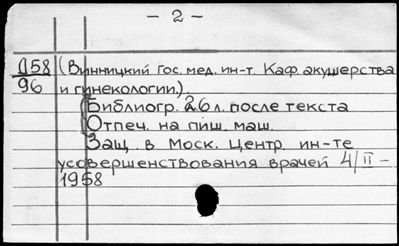 - 2 -
Д58 (Винницкий Гос. мед. ин-т. Каф. акушерства
96 и гинекологии.).
Библиогр. 26 л. после текста
Отпеч. на пиш. маш.
Защ. в Моск. Центр. ин-те
усовершенствования врачей 4/II -
1958